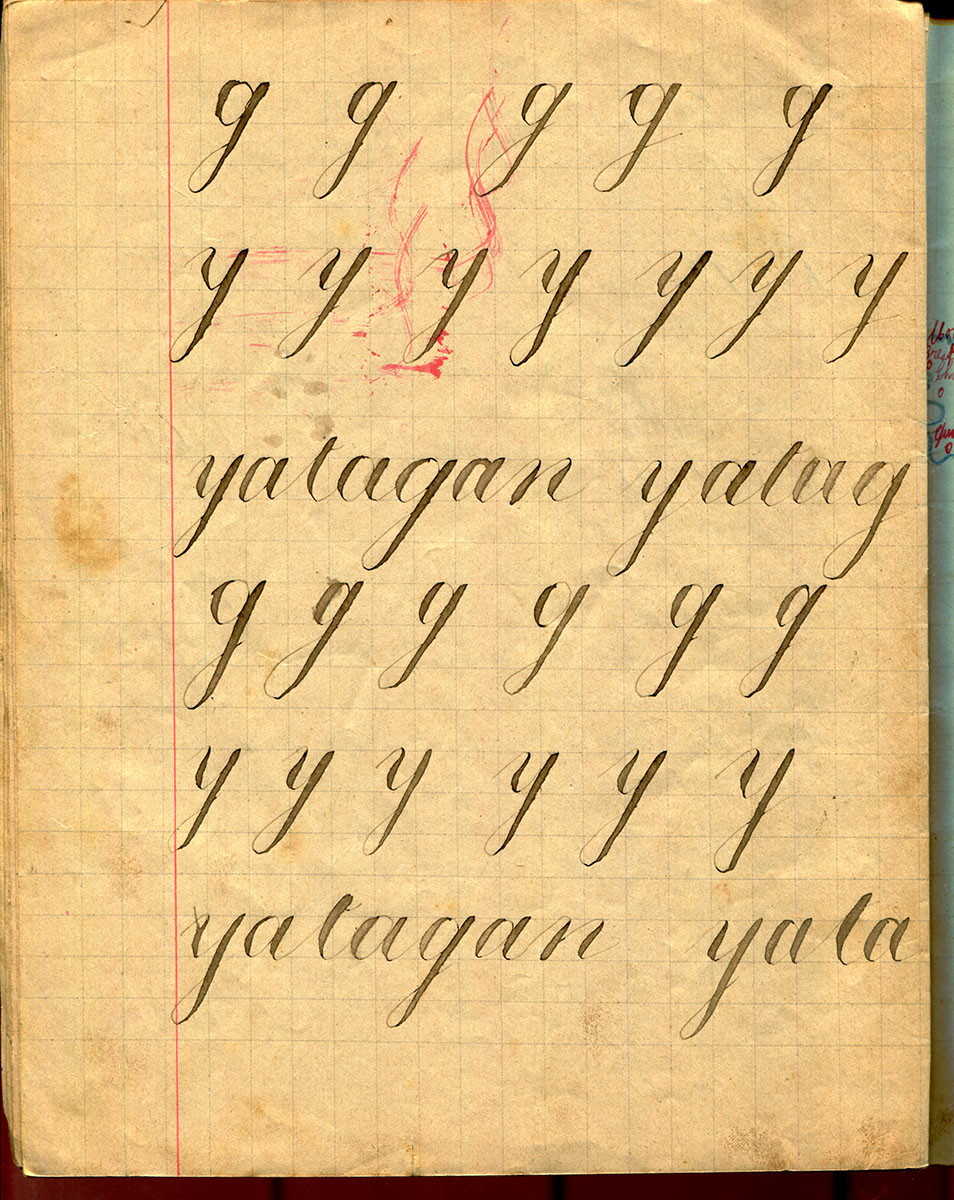 g g g g g
y y y y y y y
yatagan yatag
g g g g g g
y y y y y y
yatagan yata